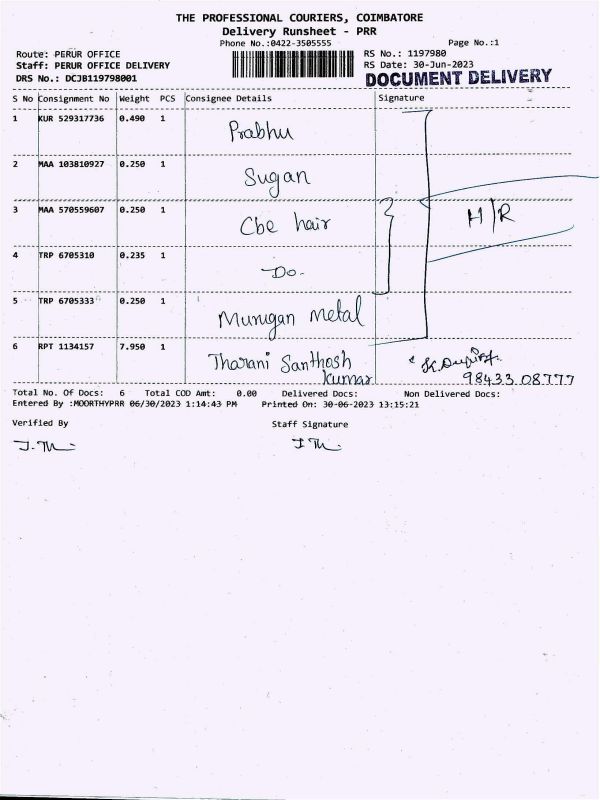 THE PROFESSIONAL COURIERS, COIMBATORE
Delivery Runsheet - PRR
Phone No.:0422-3505555 Page No.:1
Route: PERUR OFFICE RS No.: 1197980
Staff: PERUR OFFICE DELIVERY RS Date: 30-Jun-2023
DRS No.: DCJB119798001 DOCUMENT DELIVERY
S No Consignment No Weight PCS Consignee Details Signature
1 KUR 529317736 0.490 1 Prabhu
2 MAA 103810927 0.250 1 Sugan
3 MAA 570559607 0.250 1 Cbe hair H/R
4 TRP 6705310 0.235 1 Do.
5 TRP 6705333 0.250 1 Murugan Metal
6 RPT 1134157 7.950 1 Tharani Santhosh
Kumar 98433 08777
Total No. Of Docs: 6 Total COD Amt: 0.00 Delivered Docs: Non Delivered Docs:
Entered By :MOORTHYPRR 06/30/2023 1:14:43 PM Printed On: 30-06-2023 13:15:21
Verified By Staff Signature